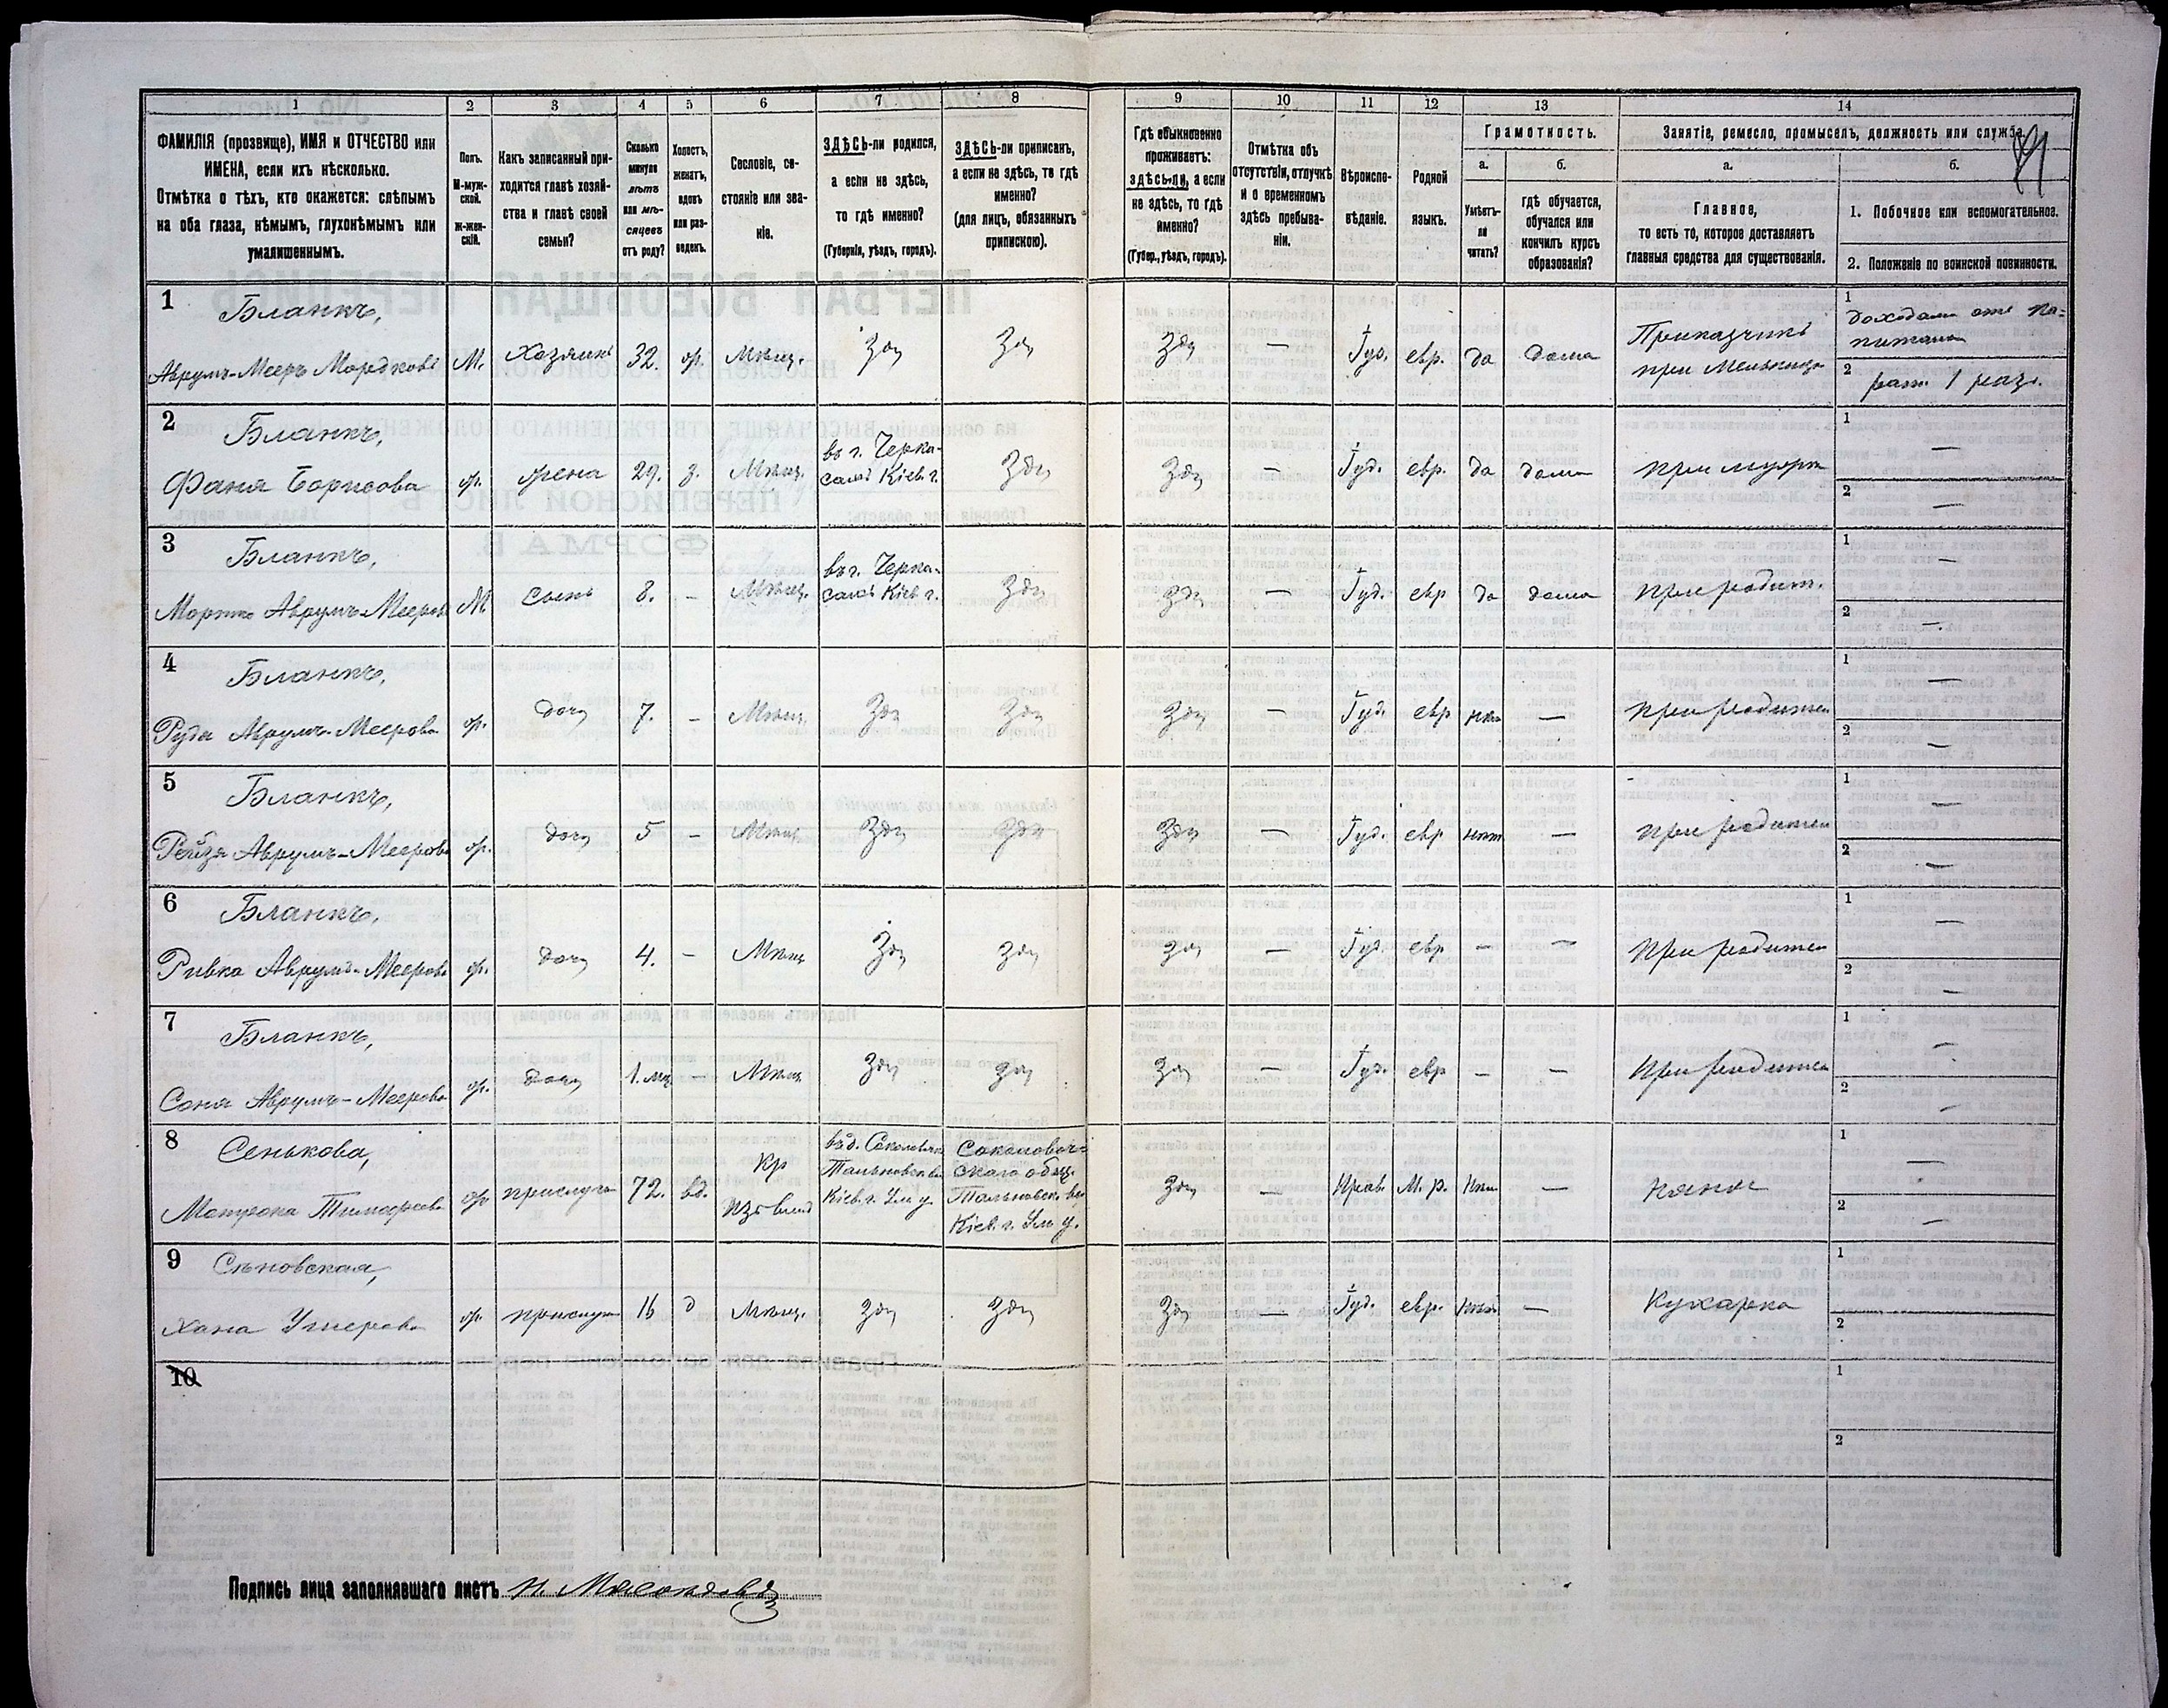 1 2 3 4 5 6 7 8 9 10 11 12 13 14
ФАМИЛІЯ (прозвище), ИМЯ и ОТЧЕСТВО или
ИМЕНА, если ихъ нѣсколько.
Отмѣтка о тѣхъ, кто окажется: слѣпымъ
на оба глаза, нѣмымъ, глухонѣмымъ или
умалишеннымъ.
Полъ.
М-муж-
ской.
Ж-жен-
скій.
Какъ записанный при-
ходится главѣ хозяй-
ства и главѣ своей
семьи?
Сколько
минуло
лѣтъ
или мѣ-
сяцевъ
отъ роду?
Холостъ,
женатъ,
вдовъ
или раз-
веденъ.
Сословіе, со-
стояніе или зва-
ніе.
ЗДѢСЬ-ли родился,
а если не здѣсь,
то гдѣ именно?
(Губернія, уѣздъ, городъ).
ЗДѢСЬ-ли приписанъ,
а если не здѣсь, то гдѣ
именно?
(для лицъ, обязанныхъ
припискою).
Гдѣ обыкновенно
проживаетъ:
здѣсь-ли, а если
не здѣсь, то гдѣ
именно?
(Губер., уѣздъ, городъ).
Отмѣтка объ
отсутствіи, отлучкѣ
и о временномъ
здѣсь пребыва-
ніи.
Вѣроиспо-
вѣданіе.
Родной
языкъ.
Грамотность.
а.
Умѣетъ-
ли
читать?
б.
гдѣ обучается,
обучался или
кончилъ курсъ
образованія?
Занятіе, ремесло, промыселъ, должность или служба.
а.
Главное,
то есть то, которое доставляетъ
главныя средства для существованія.
б.
1. Побочное или вспомогательное.
2. Положеніе по воинской повинности.
1 Бланкъ,
Аврумъ-Мееръ Мордковъ М. Хозяинъ 32. ж. Мѣщ. Здѣ Здѣ Здѣ — Іуд. евр. да дома
Приказчикъ
при
1 доходами отъ ка-
питала
2 рат. 1 раз.
2 Бланкъ,
Фаня Борисова ж. жена 29. з. Мѣщ.
въ г. Черка-
сахъ Кіев. г.
Здѣ Здѣ — Іуд. евр. да дома при мужѣ
1 —
2 —
3 Бланкъ,
Мортко Аврумъ-Мееровъ М сынъ 8. - Мѣщ.
въ г. Черка-
сахъ Кіев. г.
Здѣ Здѣ — Іуд. евр да дома при родит.
1 —
2 —
4 Бланкъ,
Руда Аврумъ-Меерова ж. дочь 7. - Мѣщ. Здѣ Здѣ Здѣ — Іуд. евр нѣт — при родител
1 —
2 —
5 Бланкъ,
Рейзя Аврумъ-Меерова ж. дочь 5 - Мѣщ Здѣ Здѣ Здѣ — Іуд. евр нѣт — при родител
1 —
2 —
6 Бланкъ,
Ривка Аврумъ-Меерова ж. дочь 4. - Мѣщ Здѣ Здѣ Здѣ — Іуд. евр — — при родител
1 —
2 —
7 Бланкъ,
Соня Аврумъ-Меерова ж. дочь 1. мц — Мѣщ Здѣ Здѣ Здѣ — Іуд. евр — — при родител
1 —
2 —
8 Сенькова,
ж прислуга 72. вд.
Кр
Тальновск.
Кіев. г. Ум у.
Тальновск. во
Кіев. г. Ум у.
Здѣ — Прав. М. р. нѣт — няня
1 —
2 —
9 Сѣновская,
Хана Ушерова ж. прислуга 16 д Мѣщ. Здѣ Здѣ Здѣ — Іуд. евр. нѣт — Кухарка
1
2
10
1
2
Подпись лица заполнявшаго листъ